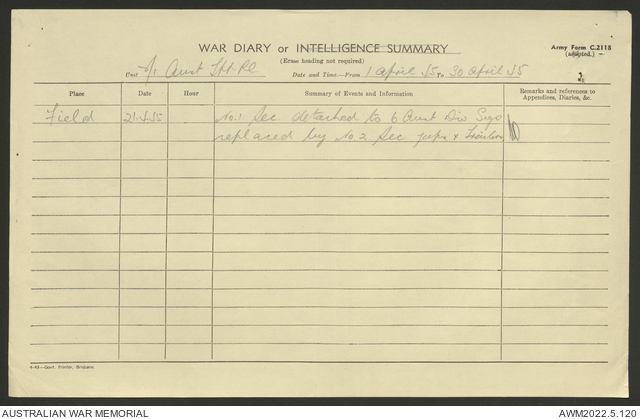 WAR DIARY or INTELLIGENCE SUMMARY
(Erase heading not required)
Army Form C.2118
(adapted.)
Unit Aust Tpt Pl Date and Time—From 1 April 55 To 30 April 55
Place Date Hour Summary of Events and Information Remarks and references to Appendices, Diaries, &c.
Field No. 1 Sec detached to 6 Aust Div Sigs
replaced by No 2 Sec jeeps &
4-43—Govt. Printer, Brisbane
AUSTRALIAN WAR MEMORIAL AWM2022.5.120